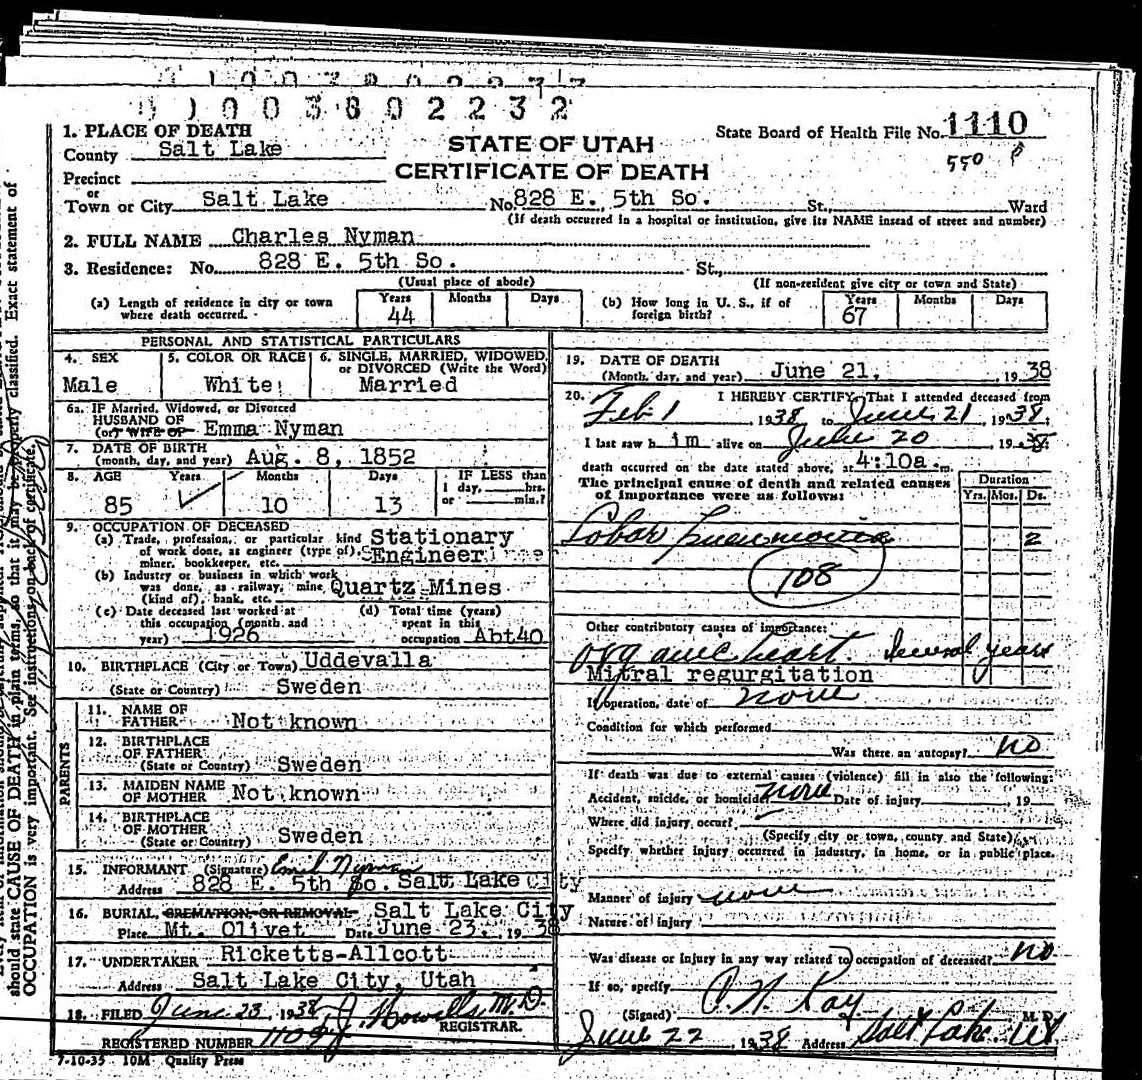 01003802232
1. PLACE OF DEATH
County Salt Lake
STATE OF UTAH
CERTIFICATE OF DEATH
State Board of Health File No. 1110
550
Precinct
or
Town or City Salt Lake No. 828 E. 5th So. St., Ward
(If death occurred in a hospital or institution, give its NAME instead of street and number)
2. FULL NAME Charles Nyman
3. Residence: No. 828 E. 5th So. St.,
(Usual place of abode) (If non-resident give city or town and State)
(a) Length of residence in city or town where death occurred. Years 44 Months Days
(b) How long in U. S., if of foreign birth? Years 67 Months Days
PERSONAL AND STATISTICAL PARTICULARS
4. SEX Male
5. COLOR OR RACE White
6. SINGLE, MARRIED, WIDOWED, or DIVORCED (Write the Word) Married
6a. IF Married, Widowed, or Divorced
HUSBAND OF
(or) WIFE OF Emma Nyman
7. DATE OF BIRTH
(month, day, and year) Aug. 8, 1852
8. AGE Years Months Days IF LESS than
1 day, hrs.
or min.?
85 10 13
9. OCCUPATION OF DECEASED
(a) Trade, profession, or particular kind
of work done, as engineer (type of),
miner, bookkeeper, etc.
Stationary
Engineer
(b) Industry or business in which work
was done, as railway, mine,
(kind of), bank, etc.
Quartz Mines
(c) Date deceased last worked at
this occupation (month and
year) 1926
(d) Total time (years)
spent in this
occupation Abt40
10. BIRTHPLACE (City or Town) Uddevalla
(State or Country) Sweden
PARENTS
11. NAME OF
FATHER Not known
12. BIRTHPLACE
OF FATHER
(State or Country) Sweden
13. MAIDEN NAME
OF MOTHER Not known
14. BIRTHPLACE
OF MOTHER
(State or Country) Sweden
15. INFORMANT (Signature) Emil Nyman
Address 828 E. 5th So. Salt Lake City
16. BURIAL, CREMATION, OR REMOVAL Salt Lake City
Place Mt. Olivet Date June 23, 1938
17. UNDERTAKER Ricketts-Allcott
Address Salt Lake City, Utah
18. FILED June 23, 1938 J. Howells M.D.
REGISTRAR.
REGISTERED NUMBER 1109
7-10-35 10M Quality Press
19. DATE OF DEATH
(Month, day, and year) June 21, 1938
20. I HEREBY CERTIFY, That I attended deceased from
Feb 1 1938 to June 21, 1938.
I last saw him alive on June 20 19
death occurred on the date stated above, at 4:10a.m.
The principal cause of death and related causes
of importance were as follows:
Duration
Yrs. Mos. Ds.
Lobar Pneumonia 2
108
Other contributory causes of importance:
Organic heart. Several years
Mitral regurgitation
If operation, date of none
Condition for which performed
Was there an autopsy? no
If death was due to external causes (violence) fill in also the following:
Accident, suicide, or homicide none Date of injury 19
Where did injury occur?
(Specify city or town, county and State)
Specify whether injury occurred in industry, in home, or in public place.
Manner of injury none
Nature of injury
Was disease or injury in any way related to occupation of deceased? no
If so, specify
(Signed) C. N. Ray M. D.
June 22 1938 Address Salt Lake. Ut
should state CAUSE OF DEATH in plain terms, so that it may be properly classified. Exact statement of
OCCUPATION is very important. See instructions on back of certificate.